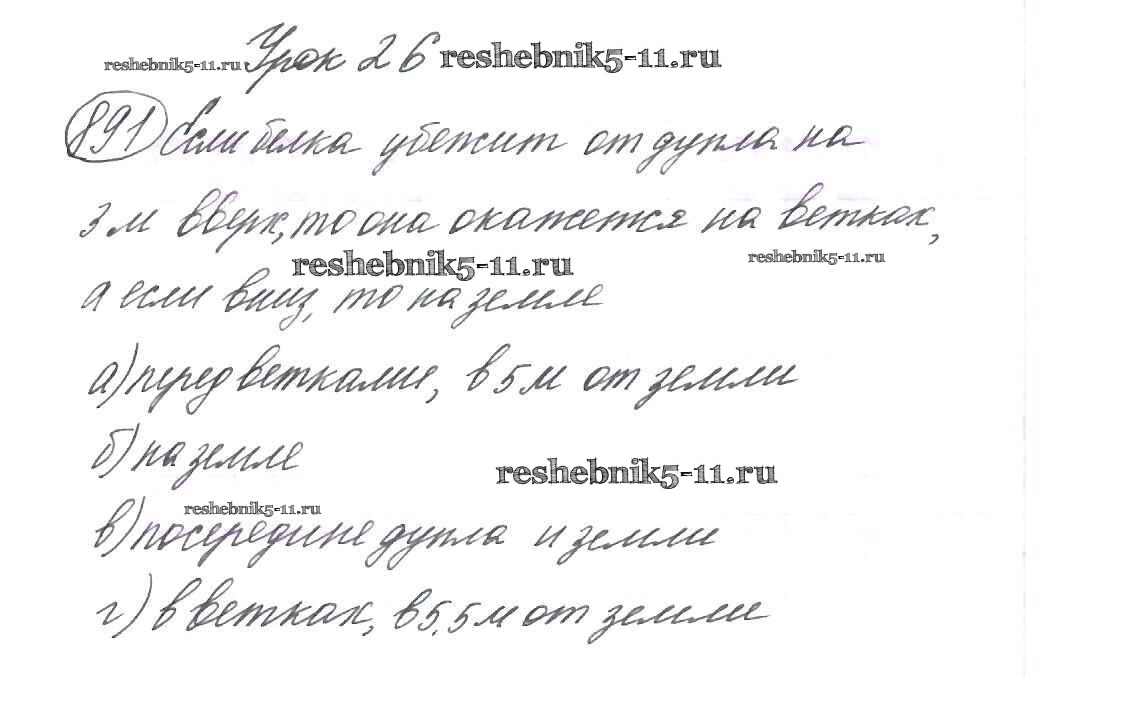 reshebnik5-11.ru Урок 26 reshebnik5-11.ru
891 Если белка убежит от дупла на
3 м вверх, то она окажется на ветках,
reshebnik5-11.ru reshebnik5-11.ru
а если вниз, то на земле
а) перед ветками, в 5 м от земли
б) на земле
reshebnik5-11.ru
reshebnik5-11.ru
в) посередине дупла и земли
г) в ветках, в 5,5 м от земли